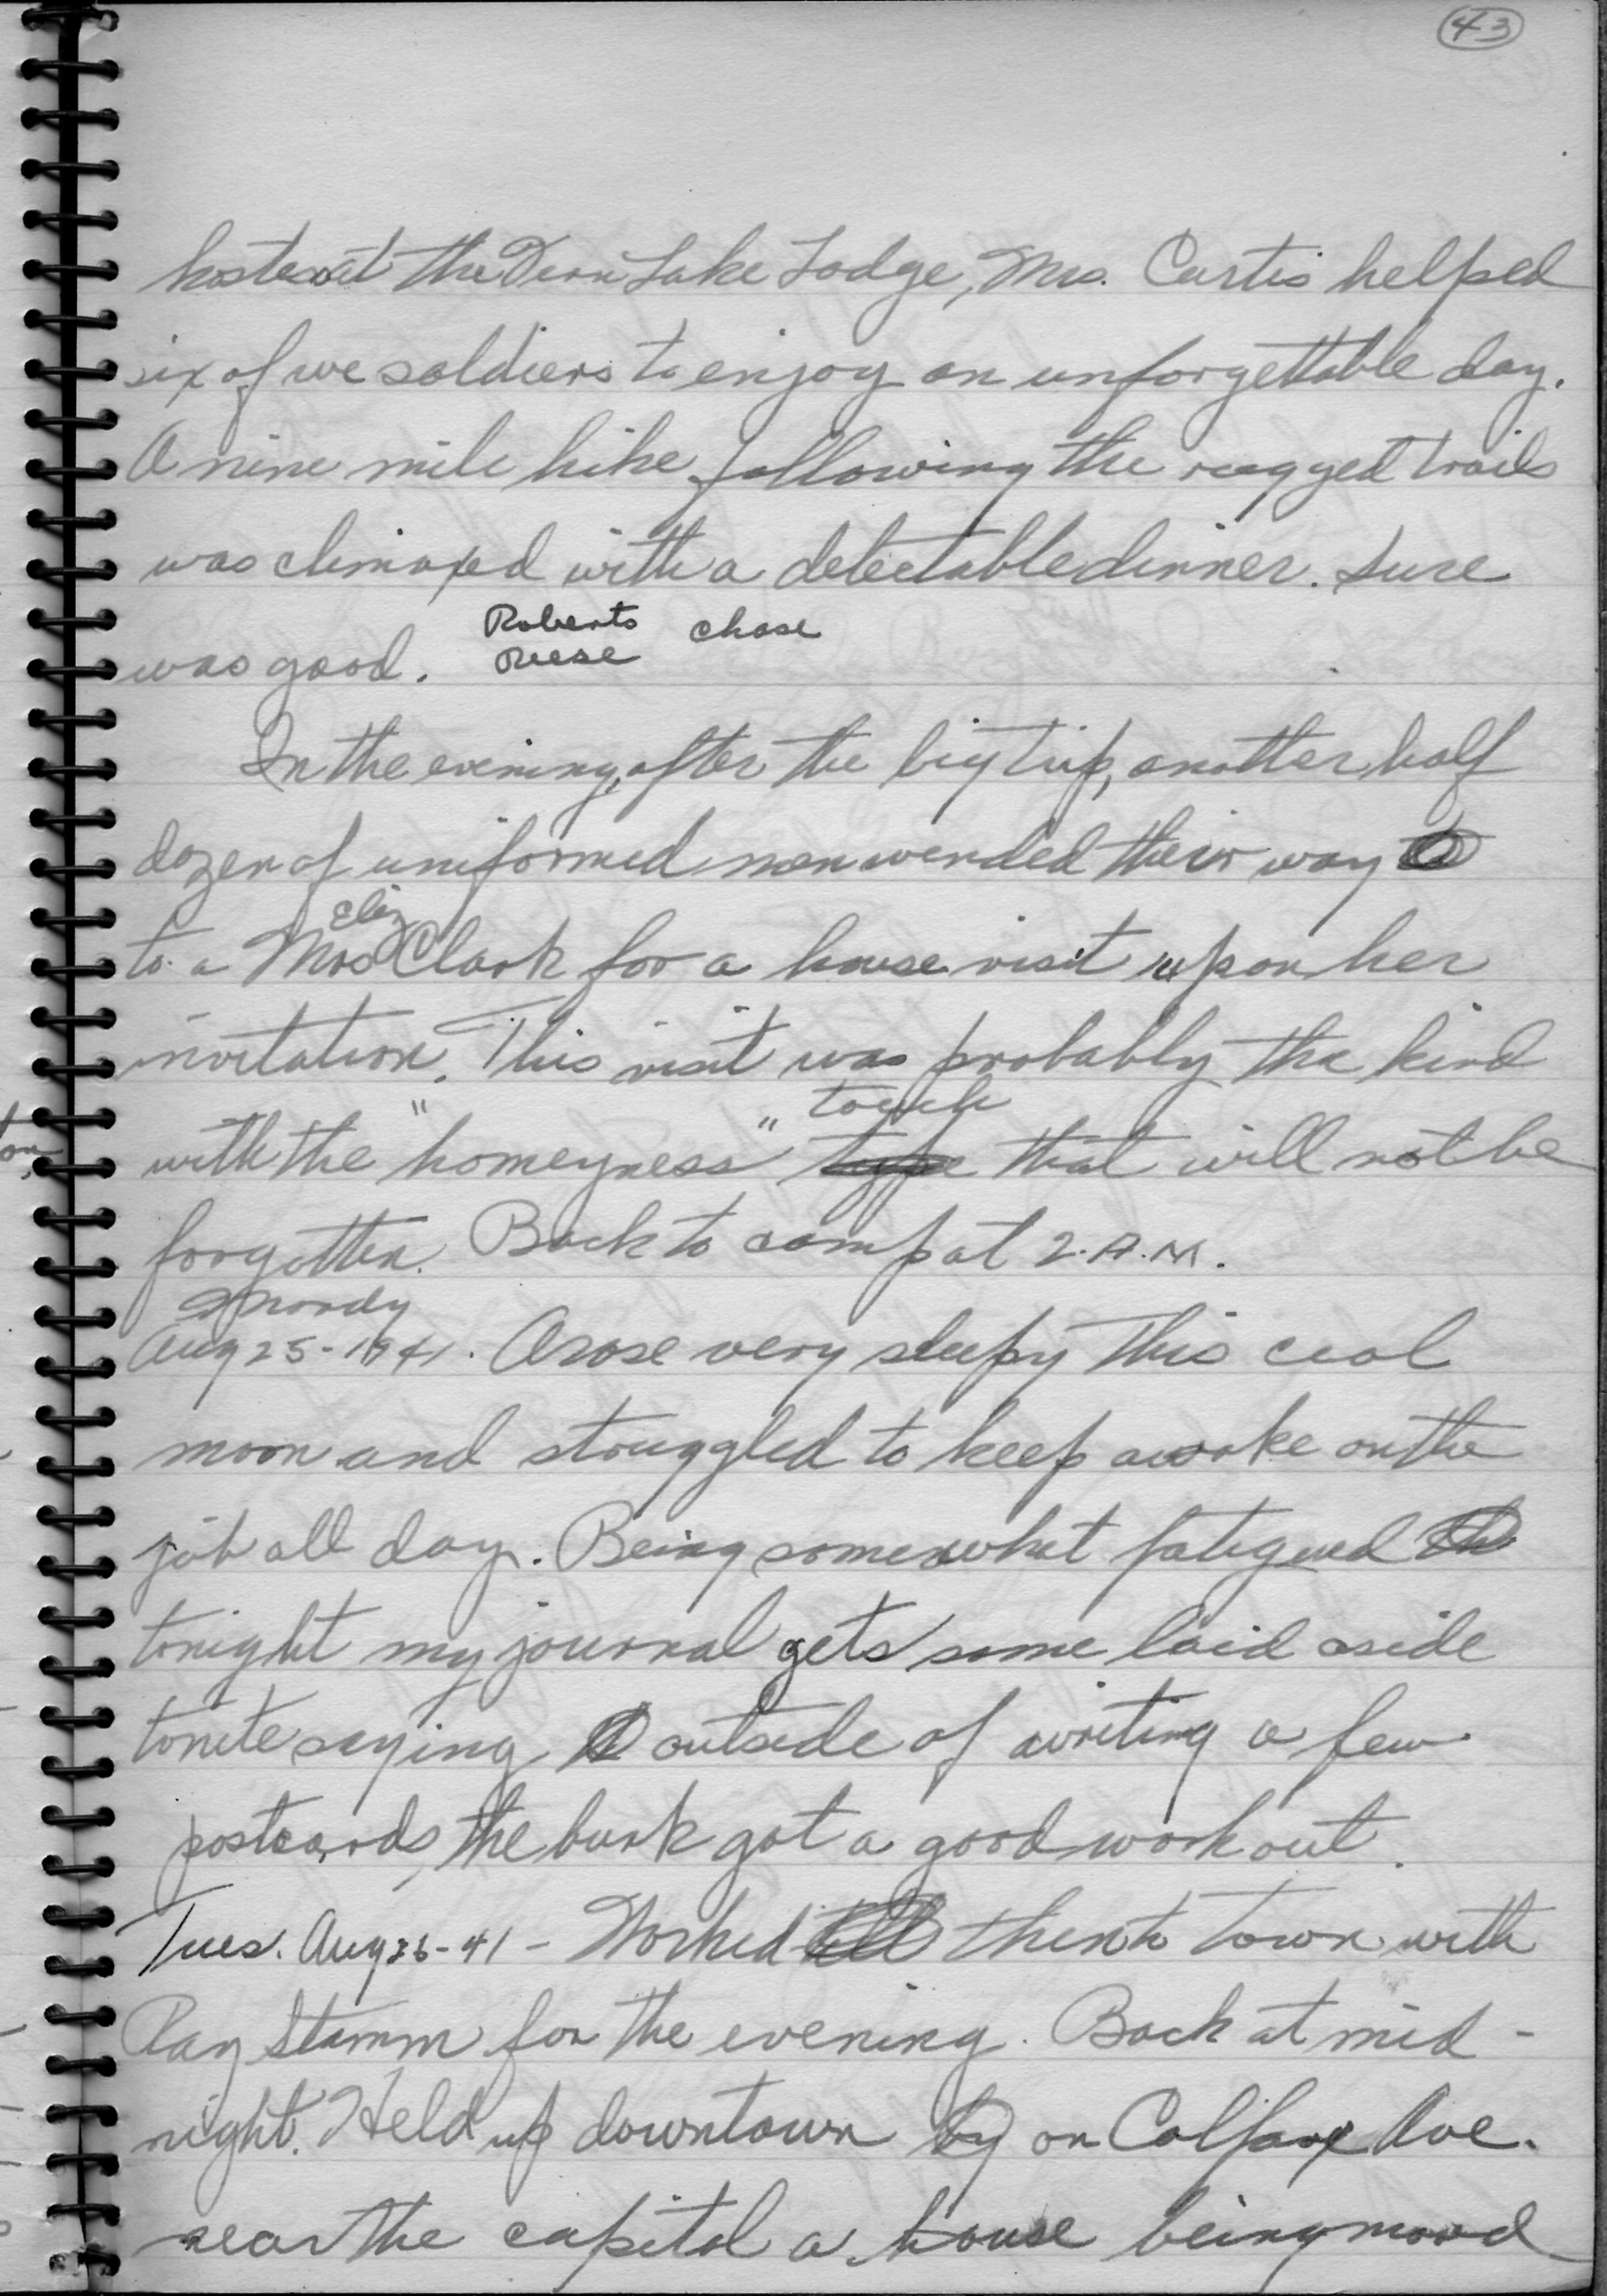 43
hostess at the Fern Lake Lodge, Mrs. Curtis helped
six of we soldiers to enjoy an unforgettable day.
A nine mile hike following the rugged trails
was climaxed with a delectable dinner. Sure
Roberts chase
was good. Reese
In the evening, after the big trip, another half
dozen of uniformed men wended their way
Eliz
to a Mrs Clark for a house visit upon her
invitation. This visit was probably the kind
touch
with the "homeyness" type that will not be
forgotten. Back to camp at 2. A.M.
Mondy
Aug 25-1941. Arose very sleepy this cool
morn and struggled to keep awake on the
job all day. Being somewhat fatigued
tonight my journal gets some laid aside
tonite saying outside of writing a few
postcards, the bunk got a good work out.
Tues. Aug 26-41 - Worked till then to town with
Ray Stamm for the evening. Back at mid-
night. Held up downtown by on Colfax Ave.
near the capitol a house being moved